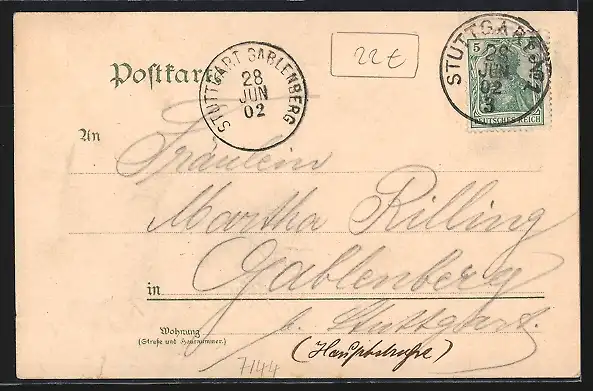 Postkarte
STUTTGART GABLENBERG
28
JUN
02
22 €
STUTTGART
28
JUN
02
3
5
DEUTSCHES REICH
An
Fräulein
Martha Rilling
in Gablenberg
b. Stuttgart.
Wohnung
(Straße und Hausnummer.)
(Hauptstraße)
7144